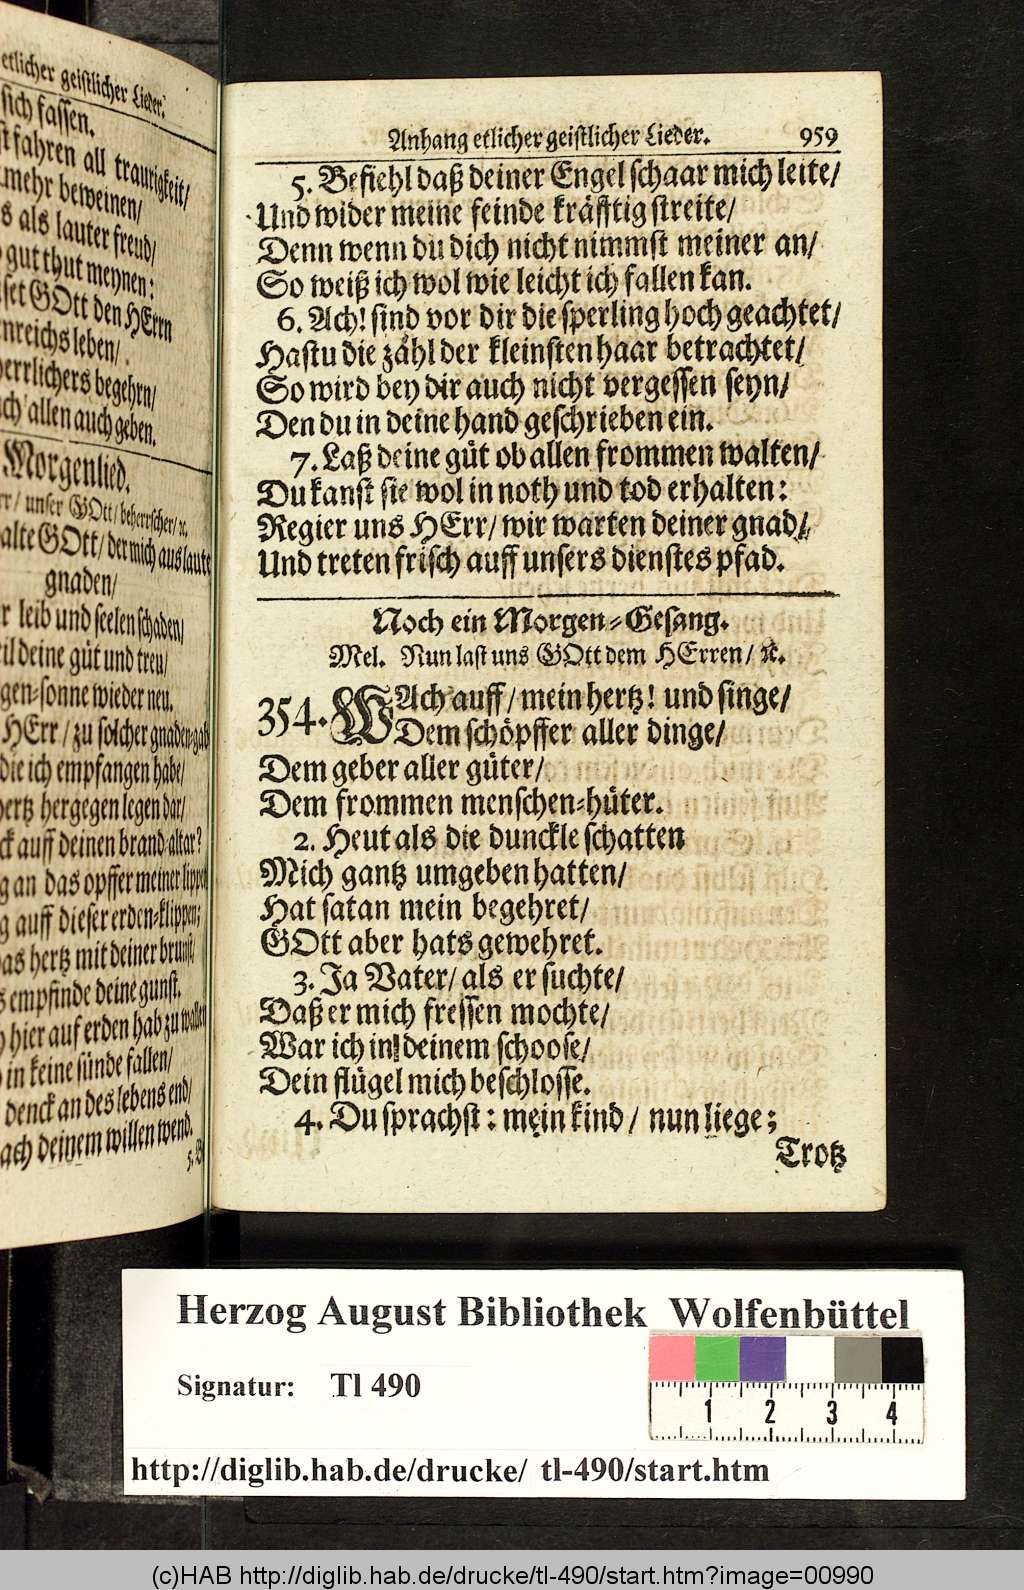 etlicher geistlicher Lieder.
sich fassen.
fahren all traurigkeit/
mehr beweinen/
als lauter freud/
gut thut meynen:
GOtt den HErrn
leben/
begehrn/
allen auch geben.
Morgenlied.
unser GOtt/ beherrscher/ ꝛc.
GOtt/ der mich aus lauter
gnaden/
leib und seelen schaden/
deine güt und treu/
sonne wieder neu.
HErr/ zu solcher gnaden-gab
die ich empfangen habe/
hertz hergegen legen dar/
auff deinen brand-altar?
an das opffer meiner lippen
auff dieser erden-klippen;
das hertz mit deiner brunst/
empfinde deine gunst.
hier auf erden hab zu wallen
in keine sünde fallen/
denck an des lebens end/
nach deinem willen wend.
Anhang etlicher geistlicher Lieder. 959
5. Befiehl daß deiner Engel schaar mich leite/
Und wider meine feinde kräfftig streite/
Denn wenn du dich nicht nimmst meiner an/
So weiß ich wol wie leicht ich fallen kan.
6. Ach! sind vor dir die sperling hoch geachtet/
Hastu die zahl der kleinsten haar betrachtet/
So wird bey dir auch nicht vergessen seyn/
Den du in deine hand geschrieben ein.
7. Laß deine güt ob allen frommen walten/
Du kanst sie wol in noth und tod erhalten:
Regier uns HErr/ wir warten deiner gnad/
Und treten frisch auff unsers dienstes pfad.
Noch ein Morgen-Gesang.
Mel. Nun last uns GOtt dem HErren/ ꝛc.
354. WAch auff/ mein hertz! und singe/
Dem schöpffer aller dinge/
Dem geber aller güter/
Dem frommen menschen-hüter.
2. Heut als die dunckle schatten
Mich gantz umgeben hatten/
Hat satan mein begehret/
GOtt aber hats gewehret.
3. Ja Vater/ als er suchte/
Daß er mich fressen mochte/
War ich in deinem schoose/
Dein flügel mich beschlosse.
4. Du sprachst: mein kind/ nun liege;
Trotz
Herzog August Bibliothek Wolfenbüttel
Signatur: Tl 490
1 2 3 4
http://diglib.hab.de/drucke/ tl-490/start.htm
(c)HAB http://diglib.hab.de/drucke/tl-490/start.htm?image=00990